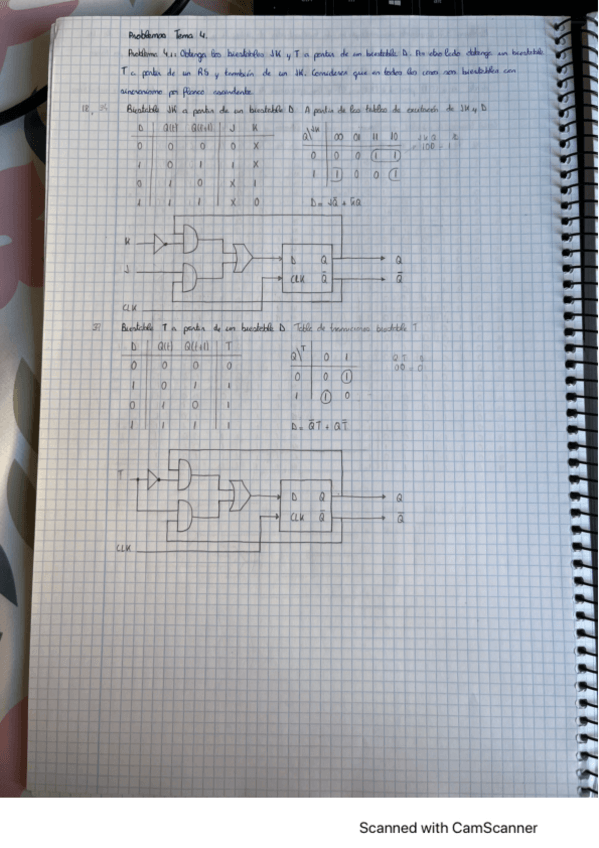 Problemas Tema 4.
Problema 4.1: Obtenga los biestables JK y T a partir de un biestable D. Por otro lado obtenga un biestable
T a partir de un RS y también de un JK. Considere que en todos los casos son biestables con
sincronismo por flanco ascendente.
Biestable JK a partir de un biestable D. A partir de las tablas de excitación de JK y D
D Q(t) Q(t+1) J K
0 0 0 0 X
1 0 1 1 X
0 1 0 X 1
1 1 1 X 0
Q\JK 00 01 11 10
0 0 0 1 1
1 1 0 0 1
D = JQ̄ + K̄Q
K
J
CLK
D Q
CLK Q̄
Q
Q̄
Biestable T a partir de un biestable D. Tabla de transiciones biestable T
D Q(t) Q(t+1) T
0 0 0 0
1 0 1 1
0 1 0 1
1 1 1 1
Q\T 0 1
0 0 1
1 1 0
D = Q̄T + QT̄
T
CLK
D Q
CLK Q̄
Q
Q̄
Scanned with CamScanner